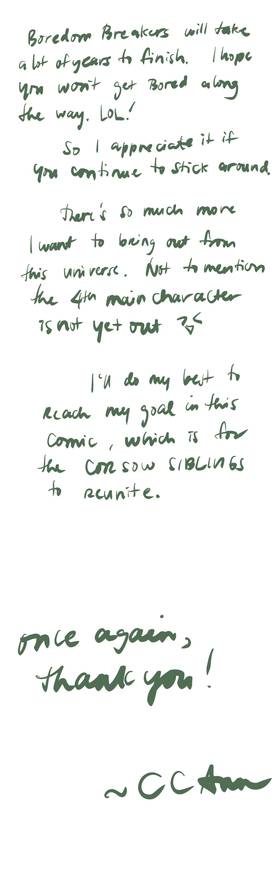 Boredom Breakers will take
a lot of years to finish. I hope
you won't get Bored along
the way. LOL!
So I appreciate it if
you continue to stick around.
there's so much more
I want to bring out from
this universe. Not to mention
the 4th main character
is not yet out
I'll do my best to
reach my goal in this
comic, which is for
the CORSOW SIBLINGS
to reunite.
once again,
thank you!
~CC Ann